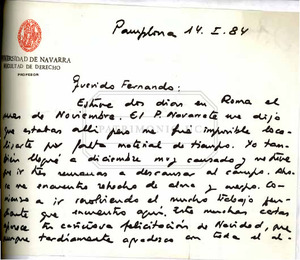 Pamplona 14. I. 84
UNIVERSIDAD DE NAVARRA
FACULTAD DE DERECHO
PROFESOR
Querido Fernando:
Estuve dos días en Roma el
mes de Noviembre. El P. Navarrete me dijo
que estabas allí pero me fué imposible loca-
lizarte por falta material de tiempo. Yo tam-
bién llegué a diciembre muy cansado y
por ir tres semanas a descansar al campo. Aho-
ra me encuentro rehecho de alma y cuerpo. Co-
mienzo a ir resolviendo el mucho trabajo pen-
diente que encuentro aquí. Entre muchas cartas
aparece tu cariñosa felicitación de Navidad, que
aunque tardíamente agradezco con toda el al-